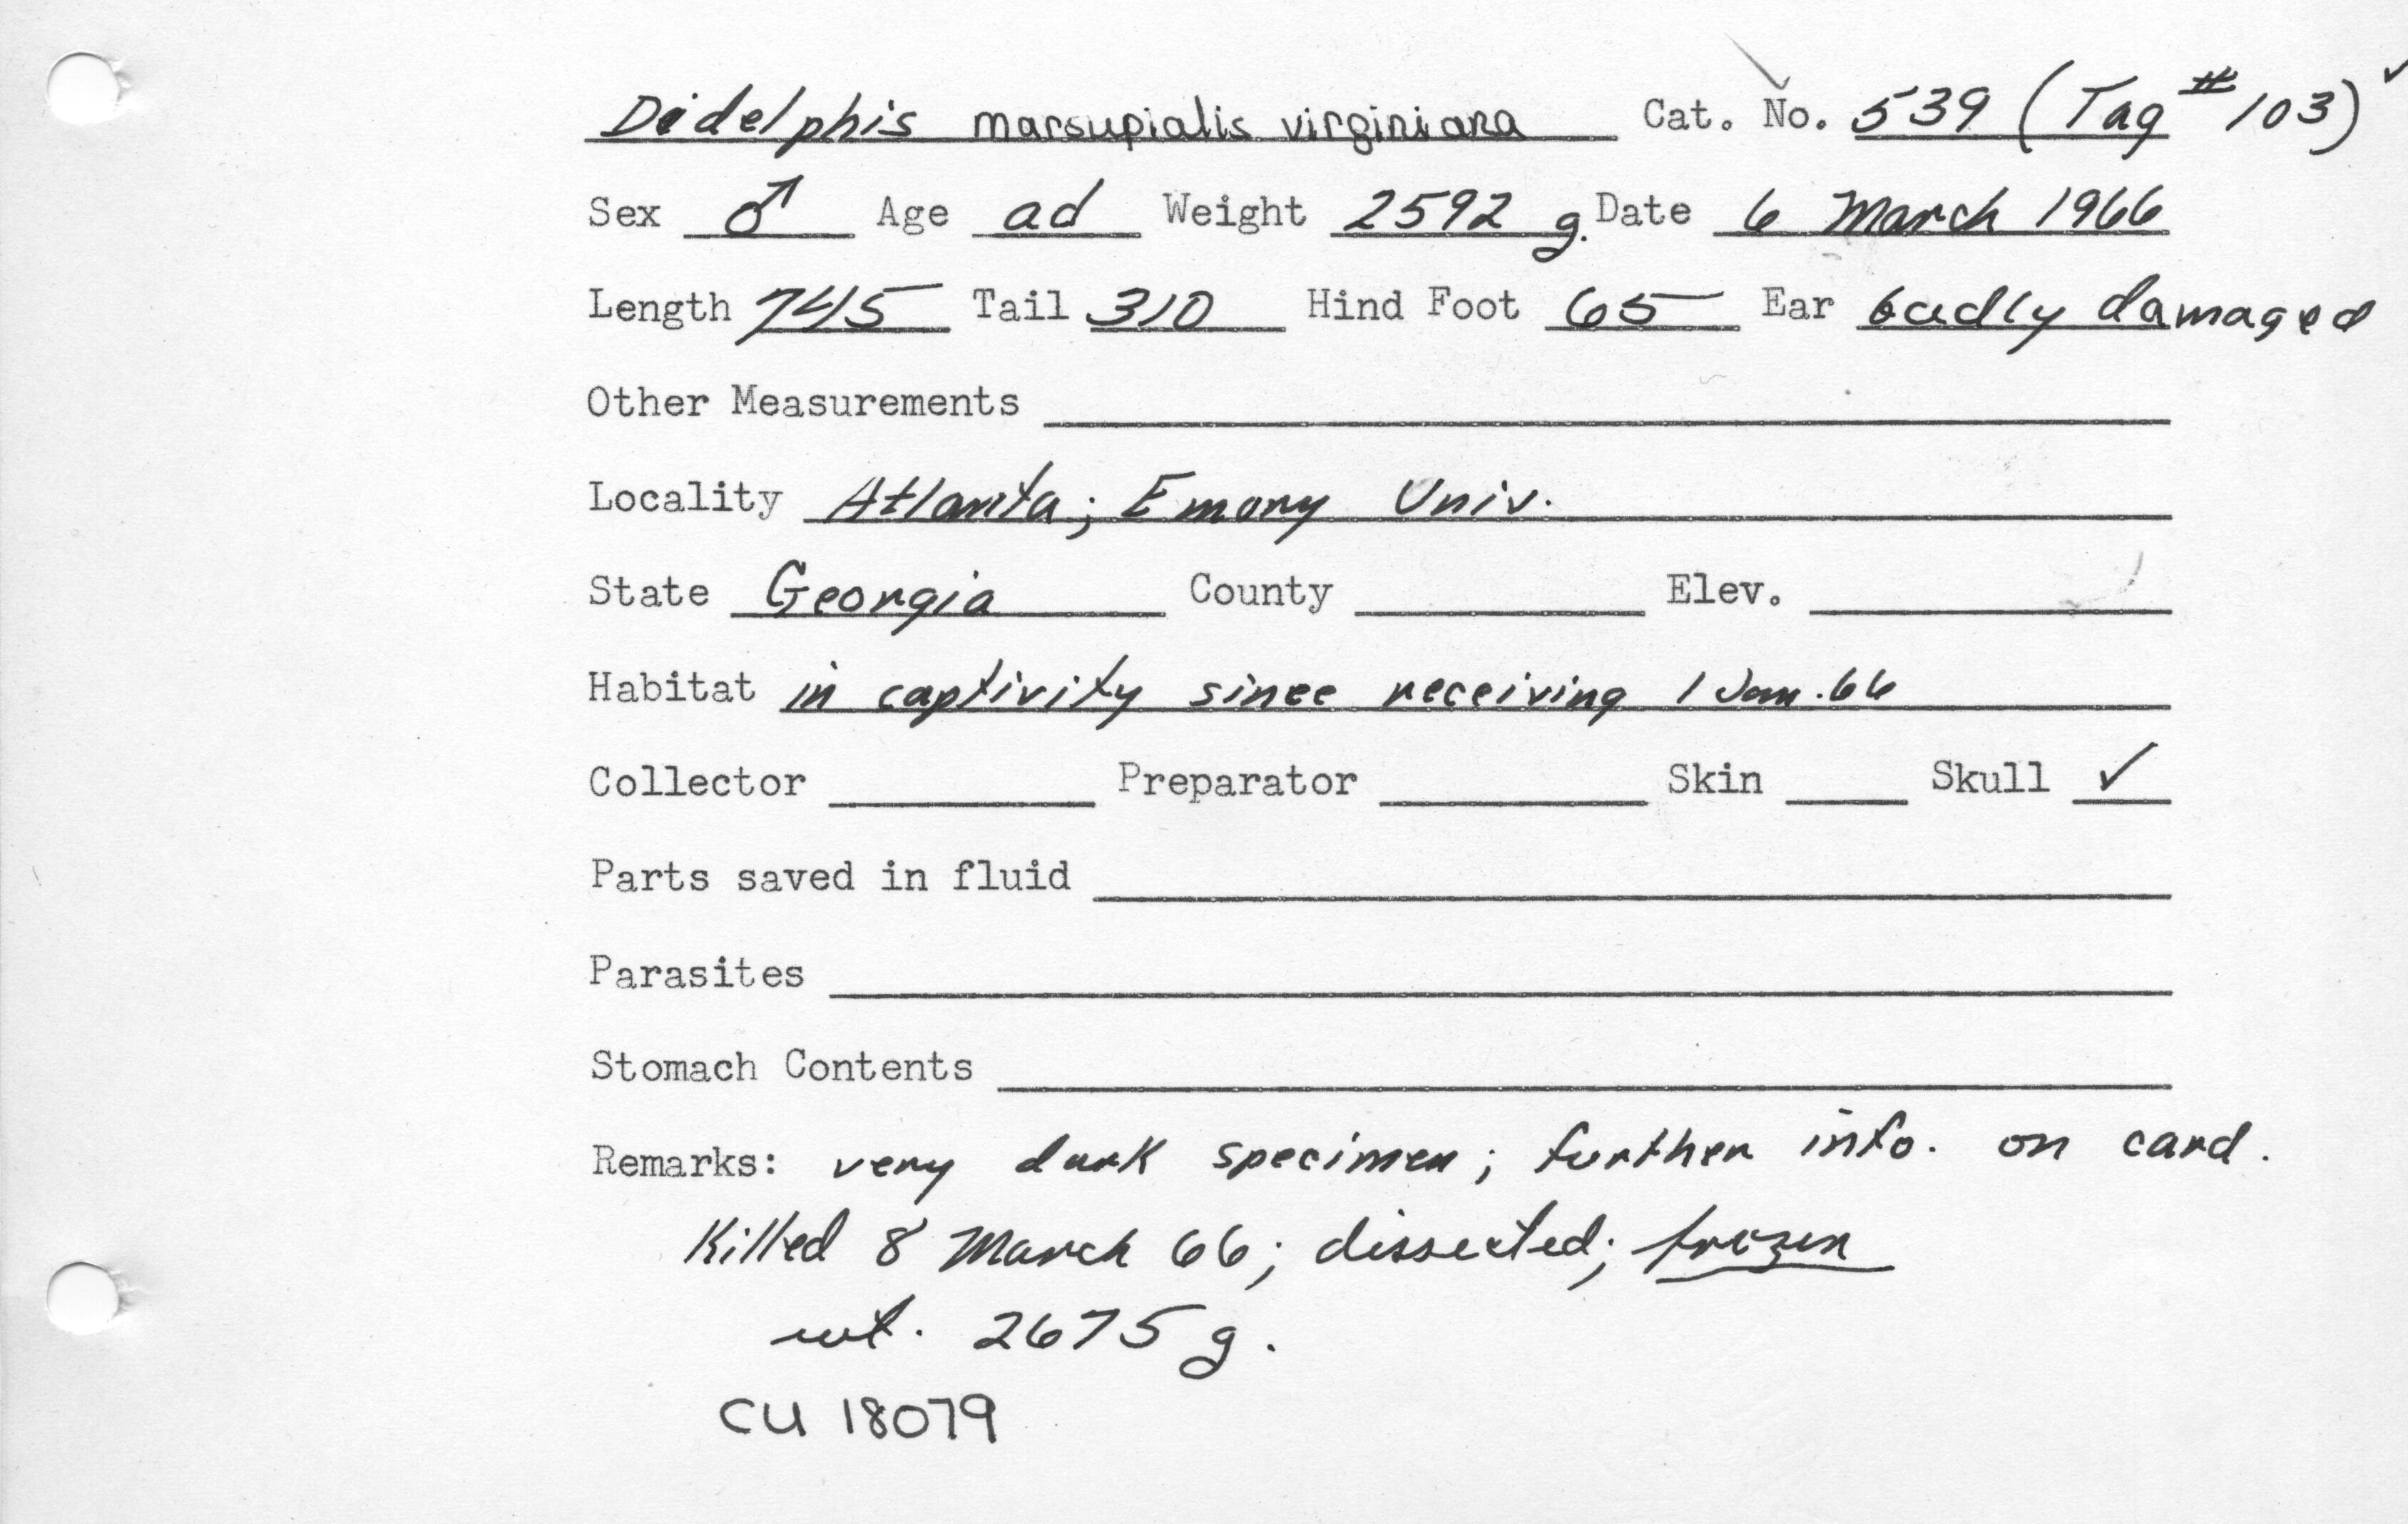 Didelphis marsupialis virginiana Cat. No. 539 (Tag # 103) ✓
Sex ♂ Age ad Weight 2592 g. Date 6 March 1966
Length 745 Tail 310 Hind Foot 65 Ear badly damaged
Other Measurements
Locality Atlanta; Emory Univ.
State Georgia County Elev.
Habitat in captivity since receiving 1 Jan. 66
Collector Preparator Skin Skull ✓
Parts saved in fluid
Parasites
Stomach Contents
Remarks: very dark specimen; further info. on card.
Killed 8 March 66; dissected; frozen
wt. 2675 g.
CU 18079